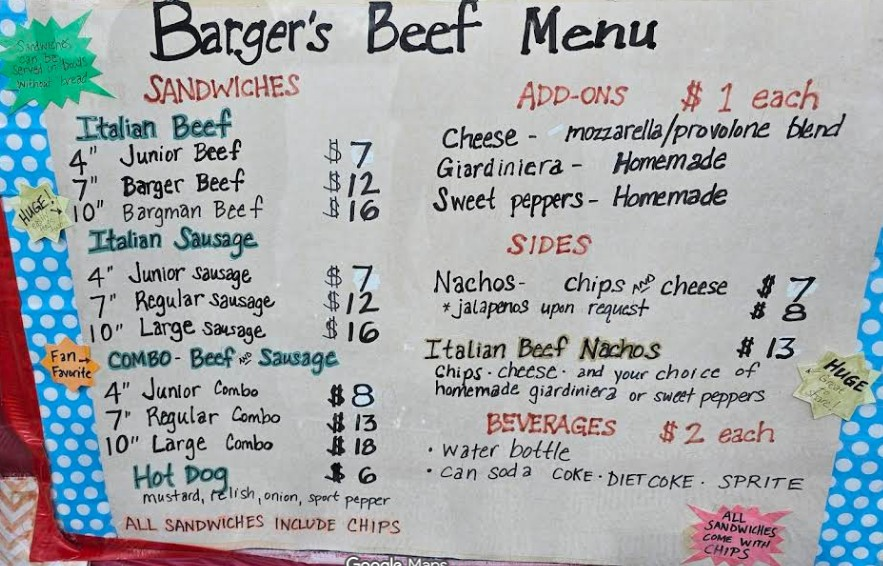 Barger's Beef Menu
Sandwiches
can be
served in bowls
without bread
SANDWICHES
Italian Beef
4" Junior Beef $ 7
7" Barger Beef $ 12
HUGE!
10" Bargman Beef $ 16
Italian Sausage
4" Junior sausage $ 7
7" Regular sausage $ 12
10" Large sausage $ 16
Fan
Favorite
COMBO - Beef AND Sausage
4" Junior Combo $ 8
7" Regular Combo $ 13
10" Large Combo $ 18
Hot Dog $ 6
mustard, relish, onion, sport pepper
ALL SANDWICHES INCLUDE CHIPS
ADD-ONS $ 1 each
Cheese - mozzarella/provolone blend
Giardiniera - Homemade
Sweet peppers - Homemade
SIDES
Nachos - chips AND cheese $ 7
*jalapenos upon request $ 8
Italian Beef Nachos $ 13
Chips · cheese · and your choice of
homemade giardiniera or sweet peppers
HUGE
Great
to
share!
BEVERAGES $ 2 each
· water bottle
· can soda COKE · DIET COKE · SPRITE
ALL
SANDWICHES
COME WITH
CHIPS
Google Maps